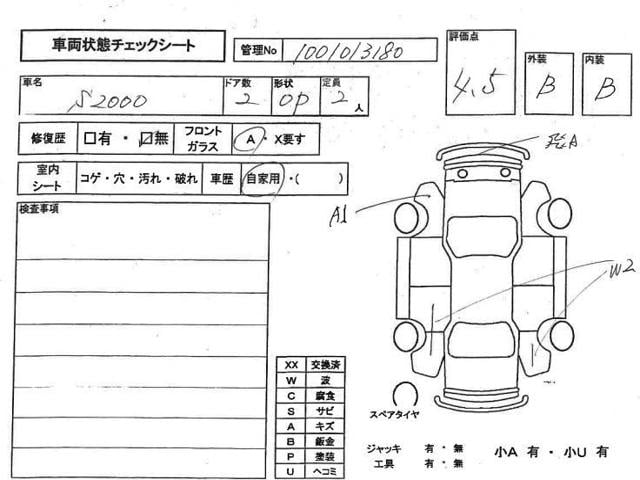 車両状態チェックシート
管理No 1001013180
評価点 4.5
外装 B
内装 B
車名 S2000
ドア数 2
形状 OP
定員 2 人
修復歴 □有・☑無
フロントガラス A・X要す
室内シート コゲ・穴・汚れ・破れ
車歴 自家用・( )
検査事項
A
A1
W2
XX 交換済
W 波
C 腐食
S サビ
A キズ
B 鈑金
P 塗装
U ヘコミ
スペアタイヤ
ジャッキ 有・無
工具 有・無
小A 有・小U 有